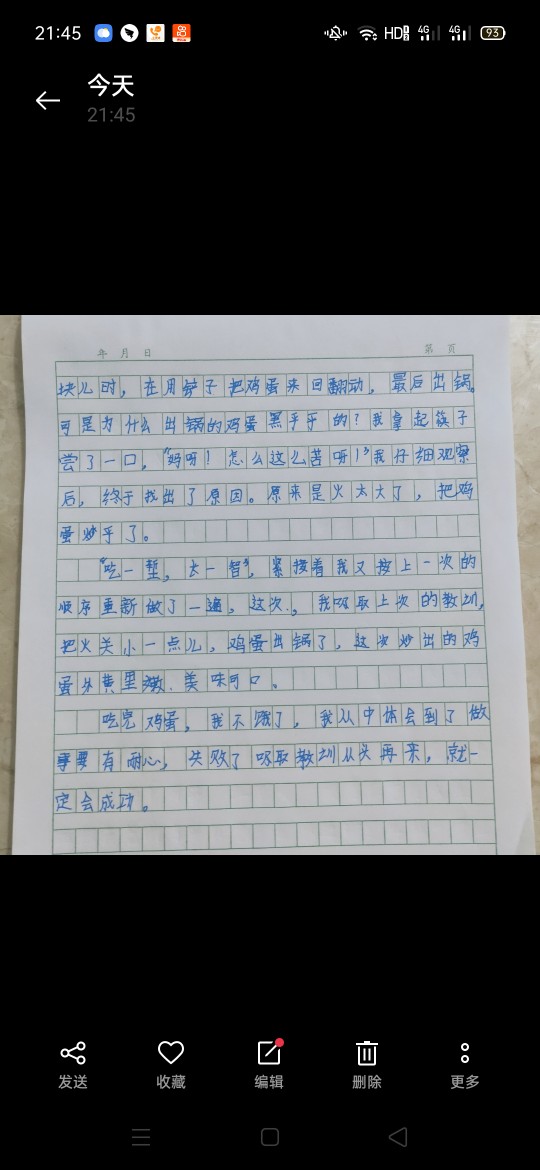 21:45
HD
4G
4G
93
今天
21:45
年 月 日
第 页
块儿时，在用铲子把鸡蛋来回翻动，最后出锅。
可是为什么出锅的鸡蛋黑乎乎的？我拿起筷子
尝了一口，“妈呀！怎么这么苦呀！”我仔细观察
后，终于找出了原因。原来是火太大了，把鸡
蛋炒乎了。
“吃一堑，长一智”，紧接着我又按上一次的
顺序重新做了一遍，这次，我吸取上次的教训，
把火关小一点儿，鸡蛋出锅了，这次炒出的鸡
蛋外黄里嫩、美味可口。
吃完鸡蛋，我不饿了，我从中体会到了做
事要有耐心，失败了吸取教训从头再来，就一
定会成功。
发送
收藏
编辑
删除
更多